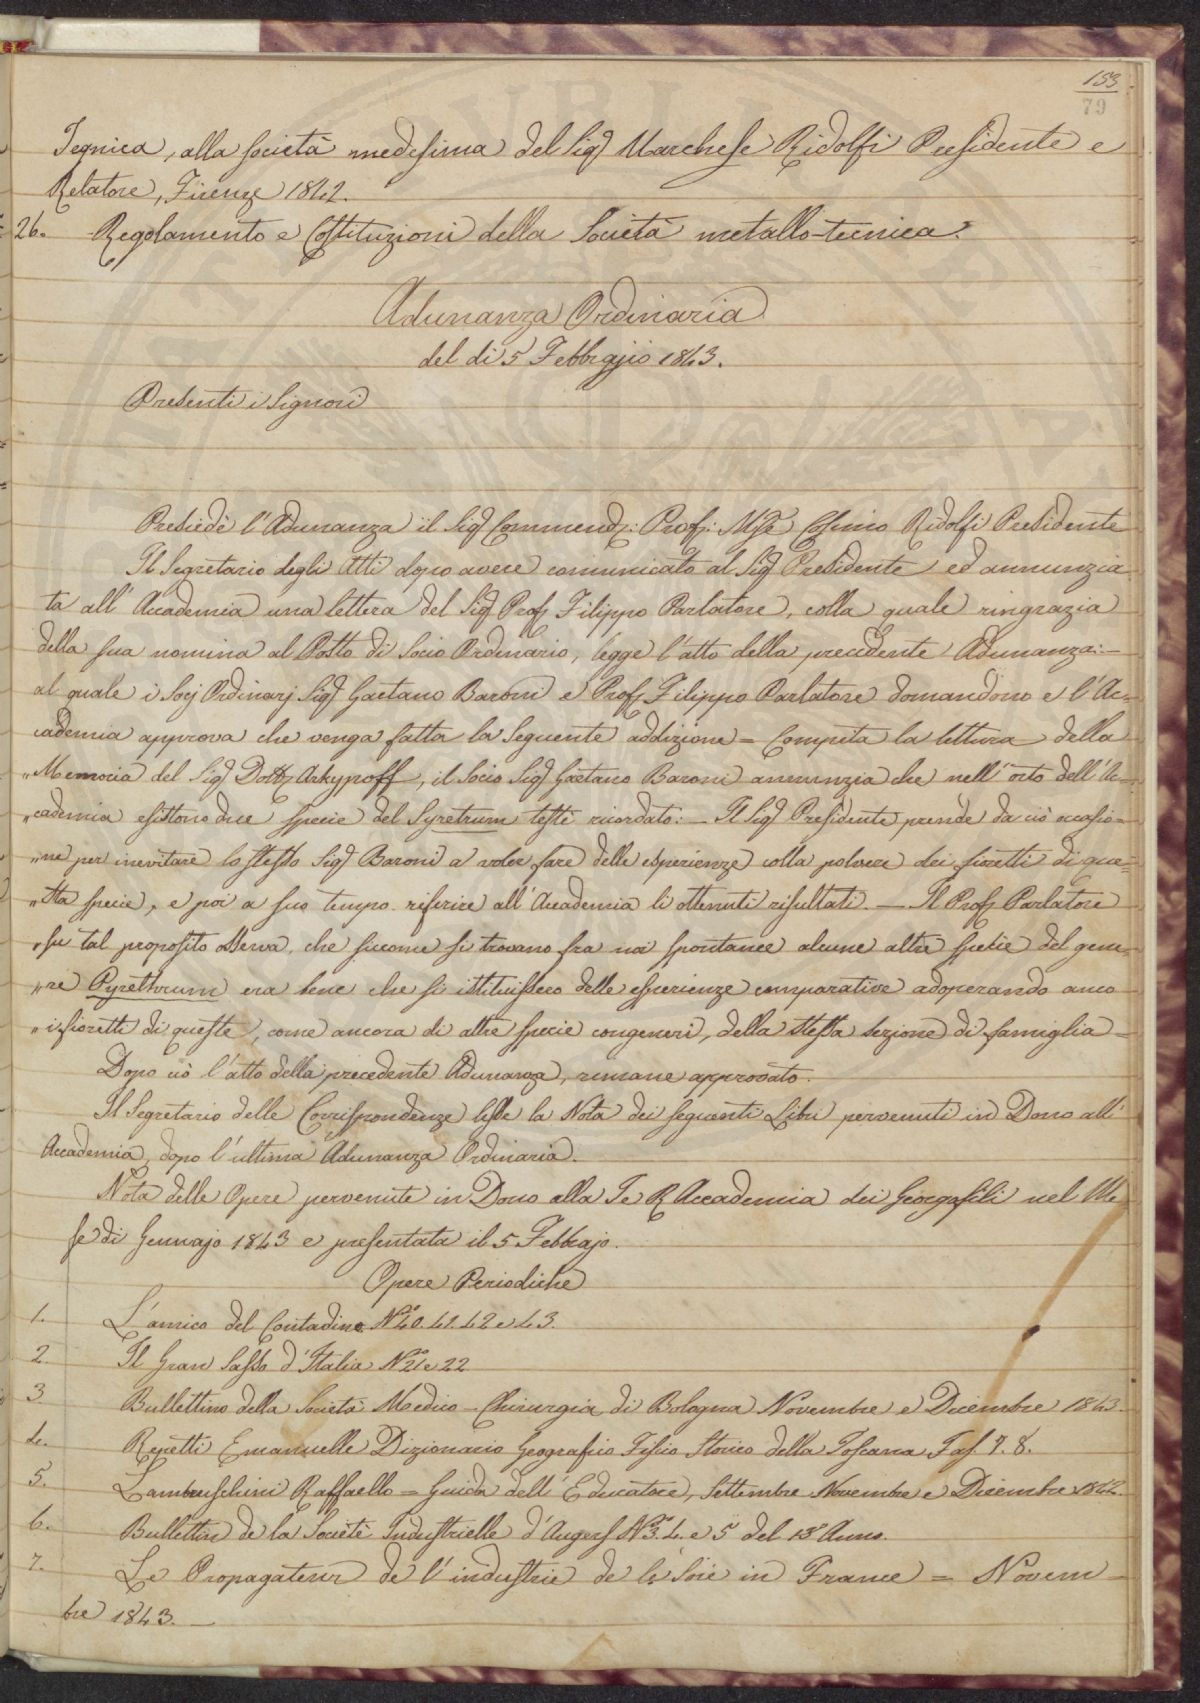 153
79
Tegnica, alla società medesima del Sig Marchese Ridolfi Presidente e
Relatore, Firenze 1842.
26. Regolamento e Costituzioni della Società metallo-tecnica.
Adunanza Ordinaria
del di 5 Febbrajio 1843.
Presenti i Signori
Presiedè l'Adunanza il Sig Commend: Prof: Mse Cosimo Ridolfi Presidente
Il Segretario degli Atti dopo avere comunicato al Sig Presidente ed annunzia
ta all'Accademia una lettera del Sig Prof Filippo Parlatore, colla quale ringrazia
della sua nomina al Posto di Socio Ordinario, legge l'atto della precedente Adunanza:-
al quale i Socj Ordinarj Sig Gaetano Baroni e Prof Filippo Parlatore domandono e l'Ac=
cademia approva che venga fatta la seguente addizione = Compita la lettura della
„Memoria del Sig Dott Arkypoff, il Socio Sig Gaetano Baroni annunzia che nell'orto dell'Ac=
„cademia esistono due specie del Syretrum testè ricordato: - Il Sig Presidente prende da ciò occasio=
„ne per inevitare lo stesso Sig Baroni a voler fare delle esperienze colla polvere dei fioretti di que=
„sta specie, e poi a suo tempo referire all'Accademia li ottenuti risultati. - Il Prof Parlatore
„su tal proposito osserva, che siccome si trovano fra noi spontanee alcune altre specie del gene=
„re Pyrethrum era bene che si istituissero delle esperienze comparative adoperando anco
„i fioretti di queste, come ancora di altre specie congeneri, della stessa sezione di famiglia =
Dopo ciò l'atto della precedente Adunanza, rimane approvato.
Il Segretario delle Corrispondenze lesse la Nota dei seguenti Libri pervenuti in Dono all'
Accademia, dopo l'ultima Adunanza Ordinaria.
Nota delle Opere pervenute in Dono alla I e R Accademia dei Georgofili nel Me
se di Gennajo 1843 e presentata il 5 Febbrajo.
Opere Periodiche
1. L'amico del Contadino No 40. 41. 42 e 43.
2. Il Gran Sasso d'Italia No 21 e 22
3 Bullettino della Società Medico-Chirurgia di Bologna Novembre e Dicembre 1843.
4. Repetti Emanuelle Dizionario Geografico Fisico Storico della Toscana Fas. 7. 8.
5. Lambruschini Raffaello = Guida dell'Educatore, Settembre Novembre e Dicembre 1842.
6. Bullettin de la Societè Industrielle d'Angers No 3. 4. e 5 del 13o Anno.
7. Le Propagateur de l'industrie de la Soie in France = Novem-
bre 1843. -